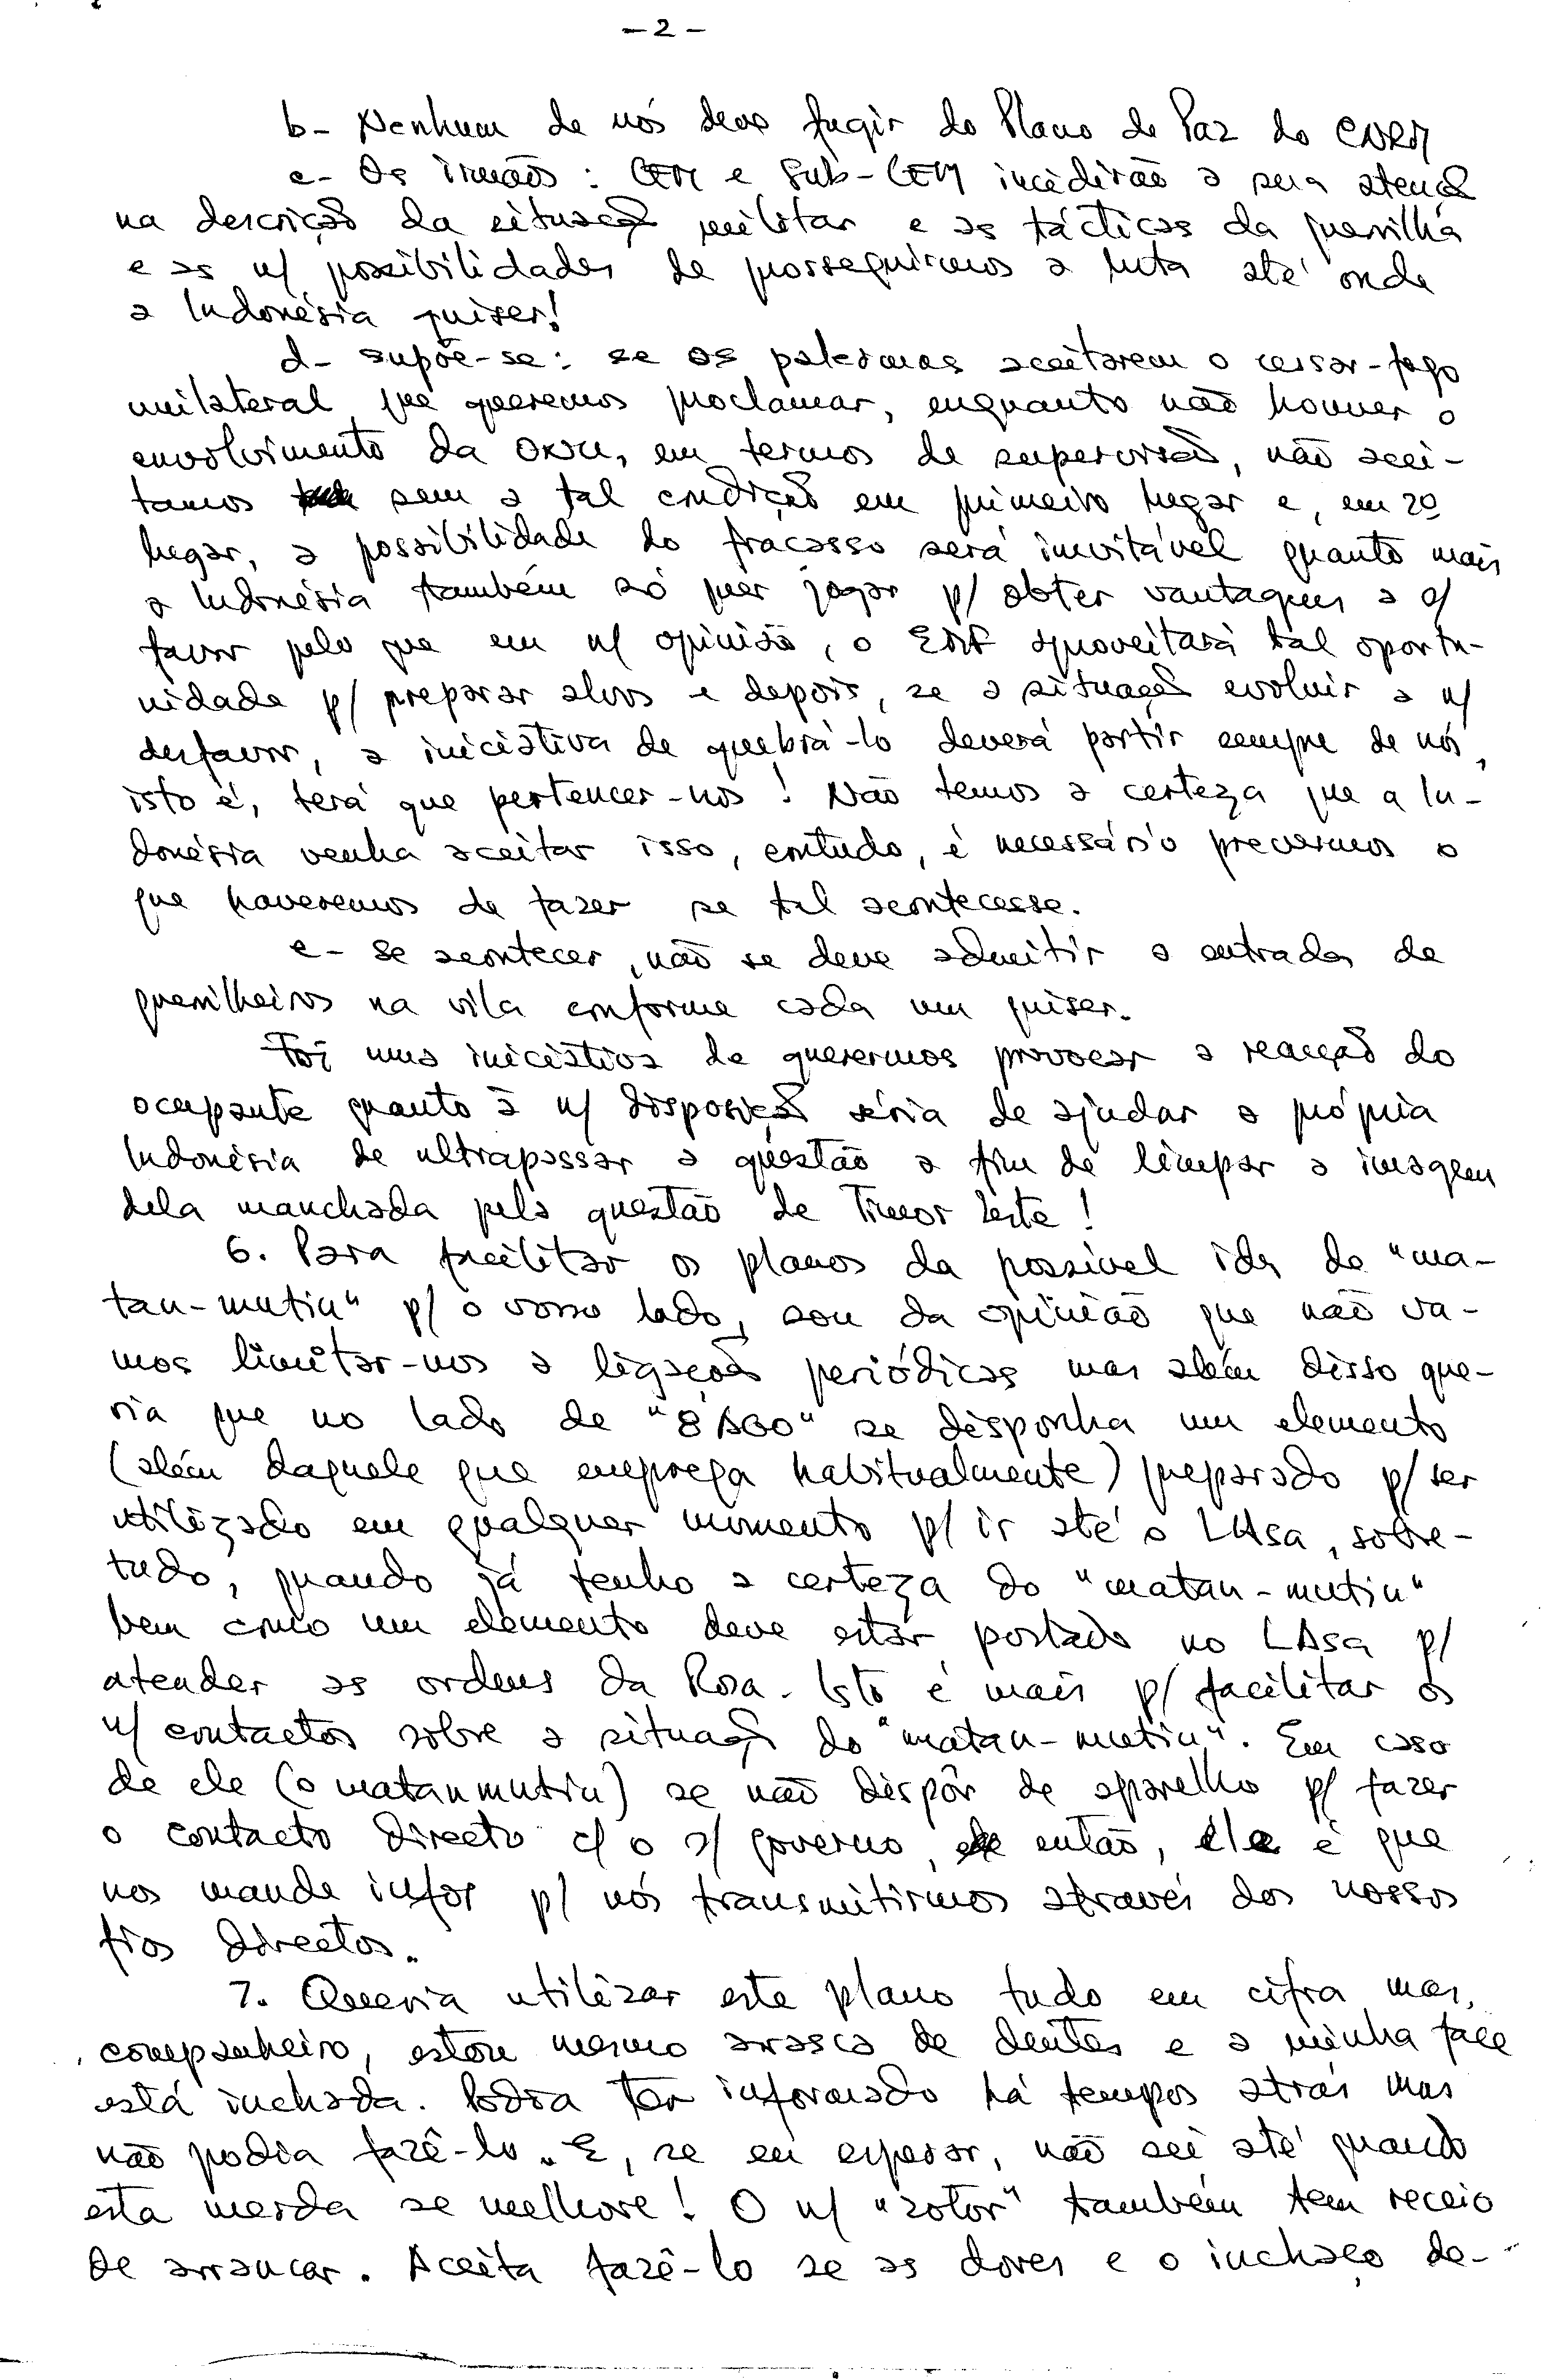 - 2 -
b- Nenhum de nós deve fugir do Plano de Paz do CNRM
c- Os irmãos: CEM e Sub-CEM incidirão a sua atenção
na descrição da situação militar e as tácticas da guerrilha
e as n/ possibilidades de prosseguirmos a luta até onde
a Indonésia quiser!
d- supõe-se: se os palermas aceitarem o cessar-fogo
unilateral que queremos proclamar, enquanto não houver o
envolvimento da ONU, em termos de supervisão, não acei-
tamos sem a tal condição em primeiro lugar e, em 2º
lugar, a possibilidade do fracasso será inevitável quanto mais
a Indonésia também só quer jogar p/ obter vantagens a s/
favor pelo que em n/ opinião, o EMF aproveitará tal oportu-
nidade p/ preparar alvos e depois, se a situação evoluir a n/
desfavor, a iniciativa de quebrá-lo deverá partir sempre de nós,
isto é, terá que pertencer-nos! Não temos a certeza que a In-
donésia venha aceitar isso, contudo, é necessário prevermos o
que haveremos de fazer se tal acontecesse.
e- Se acontecer, não se deve admitir a entrada de
guerrilheiros na vila conforme cada um quiser.
Foi uma iniciativa de querermos provocar a reacção do
ocupante quanto à n/ disposição séria de ajudar a própria
Indonésia de ultrapassar a questão a fim de limpar a imagem
dela manchada pela questão de Timor Leste!
6. Para facilitar os planos da possível ida do "ma-
tan-mutin" p/ o vosso lado, sou da opinião que não va-
mos limitar-nos a ligações periódicas mas além disso que-
ria que no lado de "8 AGO" se disponha um elemento
(além daquele que emprega habitualmente) preparado p/ ser
utilizado em qualquer momento p/ ir até o LAsa, sobre-
tudo, quando já tenho a certeza do "matan-mutin"
bem como um elemento deve estar postado no LAsa p/
atender as ordens da Rosa. Isto é mais p/ facilitar os
n/ contactos sobre a situação do "matan-mutin". Em caso
de ele (o matanmutin) se não dispôr de aparelho p/ fazer
o contacto directo c/ o s/ governo, então, ele é que
nos mande infor p/ nós transmitirmos através dos nossos
fios directos.
7. Queria utilizar este plano tudo em cifra mas,
companheiro, estou mesmo arrasca de dentes e a minha face
está inchada. Podia ter informado há tempos atrás mas
não podia fazê-lo. E, se eu esperar, não sei até quando
esta merda se melhore! O n/ "rotor" também tem receio
de arrancar. Aceita fazê-lo se as dores e o inchaço de-